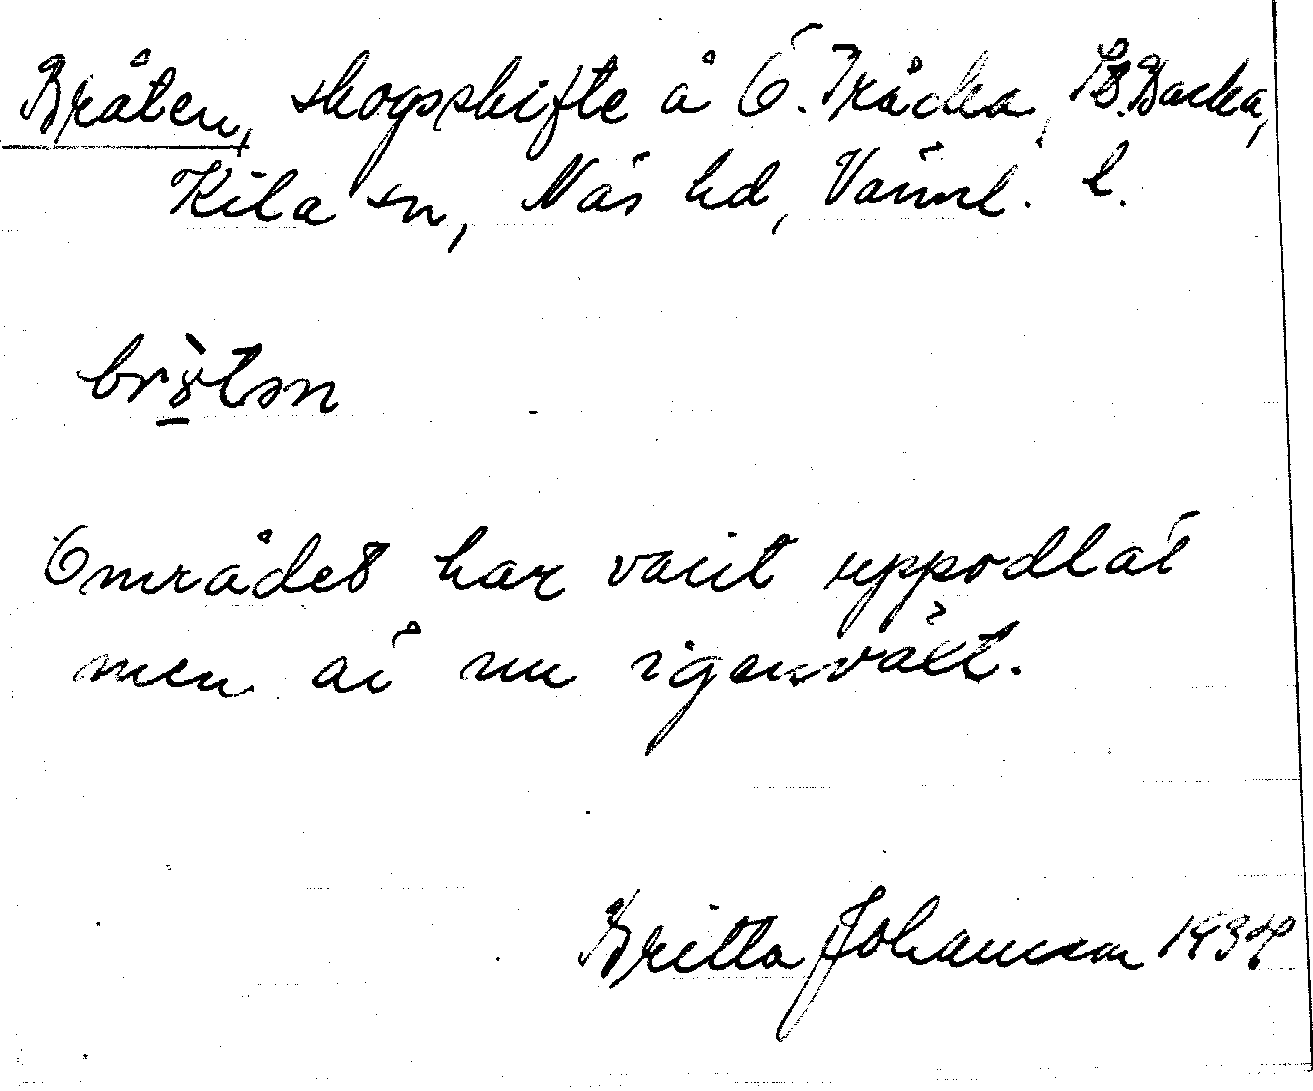 Bråten, skogsskifte å Ö. Tråcka, St. Backa,
Kila sn, Näs hd, Värml. l.
områdes
Området har varit uppodlat
men är nu igenväxt.
Britta Johansson 1934